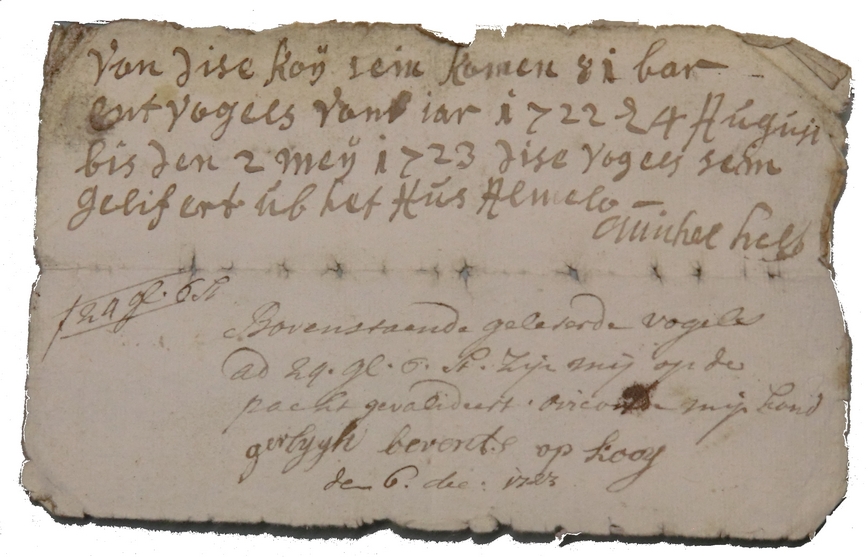 Von dise Koÿ sein komen 81 bar
entvogels vont iar 1722 24 August
bis den 2 meÿ 1723 dise vogels sein
gelifert ub het Hus Almelo
Bovenstaende geleverde vogels
ad 24. gl. 6. st. Zijn mij op de
pacht gevalideert. mijn hand
berents op kooy
den 6. dec: 1723